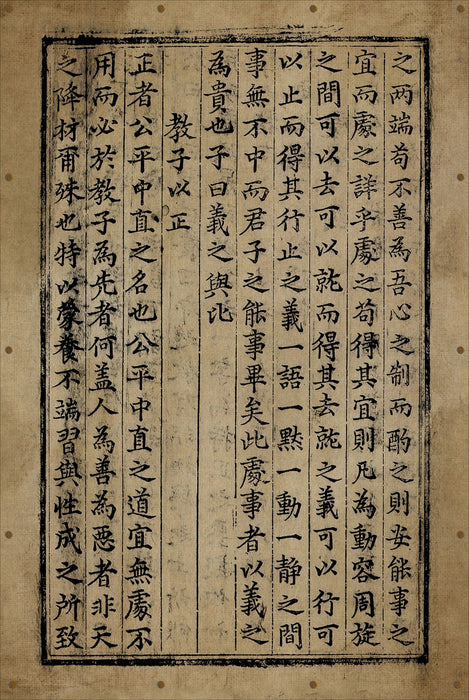 之两端苟不善為吾心之制而酌之則安能事之
宜而處之詳乎處之苟得其宜則凡為動容周旋
之間可以去可以就而得其去就之義可以行可
以止而得其行止之義一語一默一動一静之間
事無不中而君子之能事畢矣此處事者以義之
為貴也子曰義之與比
教子以正
正者公平中直之名也公平中直之道宜無處不
用而必於教子為先者何盖人為善為惡者非天
之降材甭殊也特以蒙養不端習與性成之所致